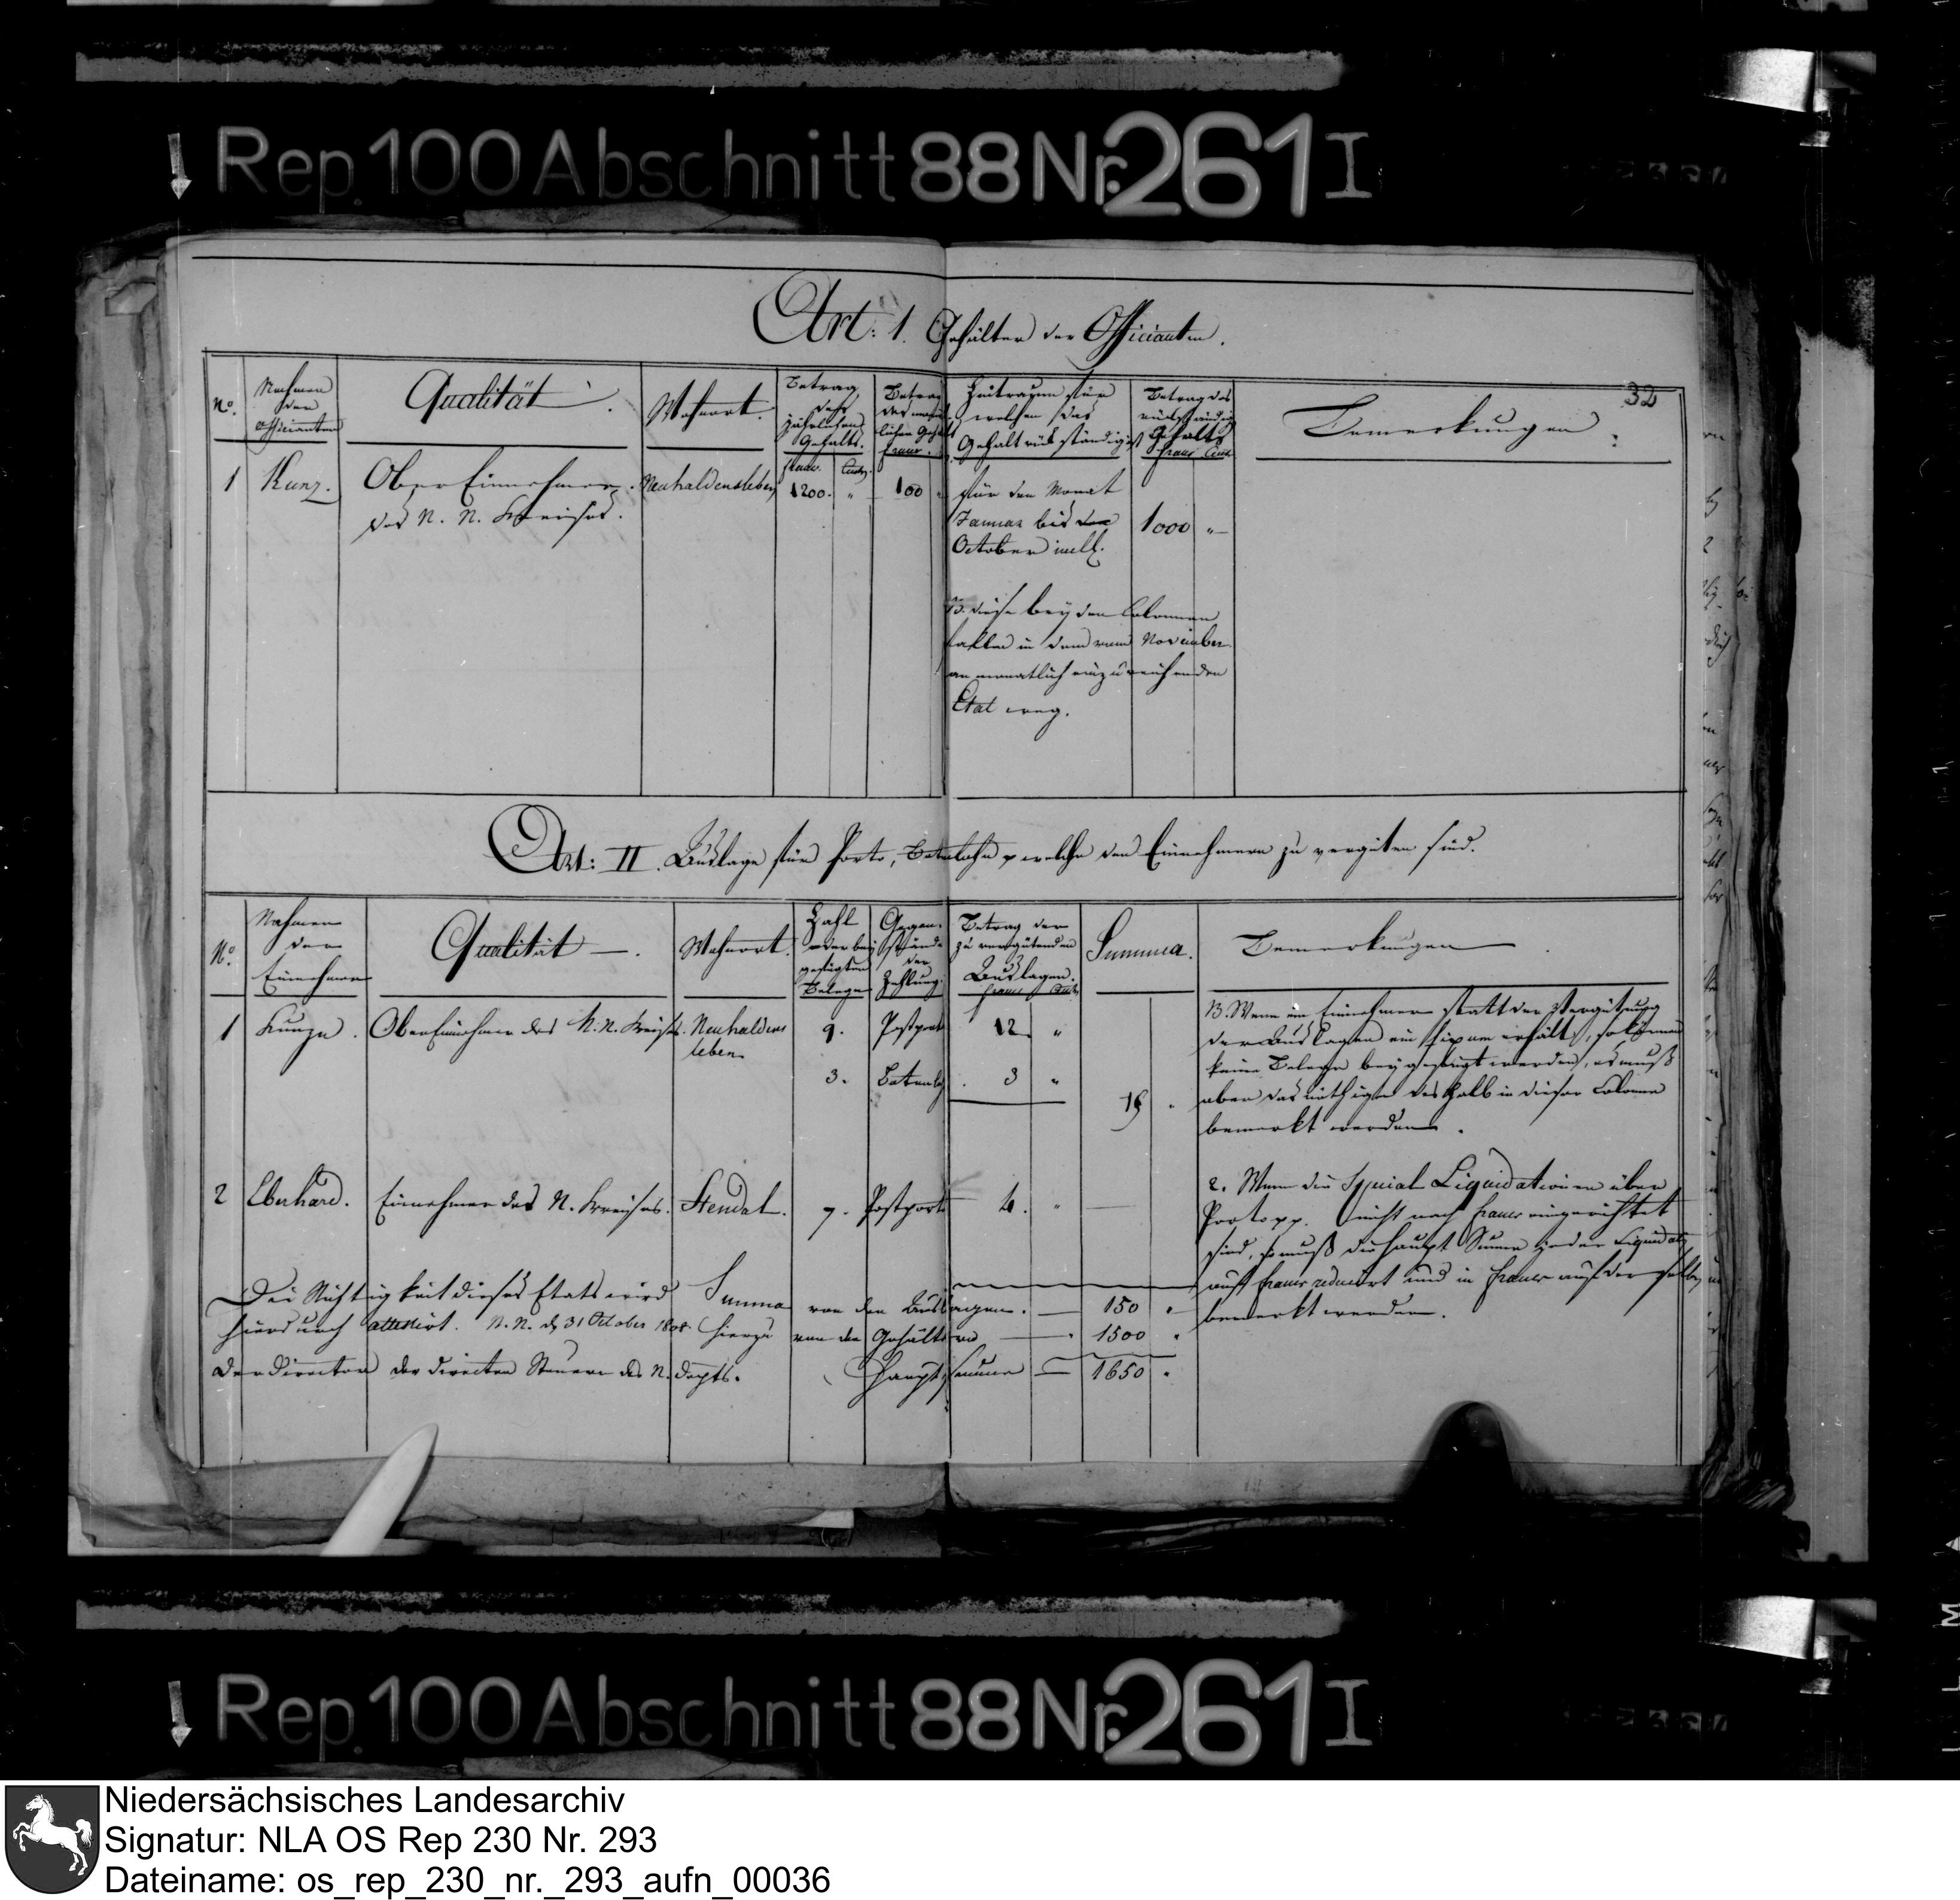 Rep. 100 Abschnitt 88 Nr. 261 I
Art: 1. Gehälter der Officianten.
32
No.
Nahmen
der
Officianten
Qualität.
Wohnort.
Betrag
des
jährlichen
Gehalts.
Franc. Cent.
Betrag
des monat-
lichen Gehalts
Franc.
Zeitraum für
welchen das
Gehalt rückständig ist
Betrag des
rückständigen
Gehalts
Franc Cent
Bemerkungen:
1 Kunz. Ober Einnehmer Neuhaldensleben 1200. " 100 "
des N. N. Kreises.
für den Monat
Januar bis
October incl.
1000 "
B. diese beyden Colonnen
fallen in dem vom November
an monatlich einzureichenden
Etat weg.
Art: II. Auslage für Porto, Botenlohn p welche den Einnehmern zu vergüten sind.
No.
Nahmen
der
Einnehmer
Qualität.
Wohnort.
Zahl
der bei
gefügten
Belege
Gegen-
stände
der
Zahlung.
Betrag der
zu vergütenden
Auslagen.
Franc Cent.
Summa.
Bemerkungen
1 Kunze. Ober Einnehmer des N. N. Kreises. Neuhaldens
leben
9. Postporto 12. "
3. Botenloh. 3 "
15 "
B. Wenn ein Einnehmer statt der Vergütung
der Auslagen ein fixum erhält, so können
keine Belege beygefügt werden, es muß
aber das nöthige deshalb in dieser Colonne
bemerkt werden.
2 Eberhard. Einnehmer des N. Kreises. Stendal. 7. Postporto 4. "
2. Wenn die Special Liquidationen über
Porto pp. nicht nach Francs eingerichtet
sind, so muß die Haupt Summe jeder Liquidation
auf Francs reducirt und in Francs auf derselben
bemerkt werden.
Die Richtigkeit dieses Etats wird
hierdurch attestirt. N. N. d. 31 October 1808.
Der Director der directen Steuern des N. Depts.
Summa von den Auslagen. 150 "
hierzu von den Gehältern 1500 "
Haupt Summe 1650 "
Rep. 100 Abschnitt 88 Nr. 261 I
Niedersächsisches Landesarchiv
Signatur: NLA OS Rep 230 Nr. 293
Dateiname: os_rep_230_nr._293_aufn_00036